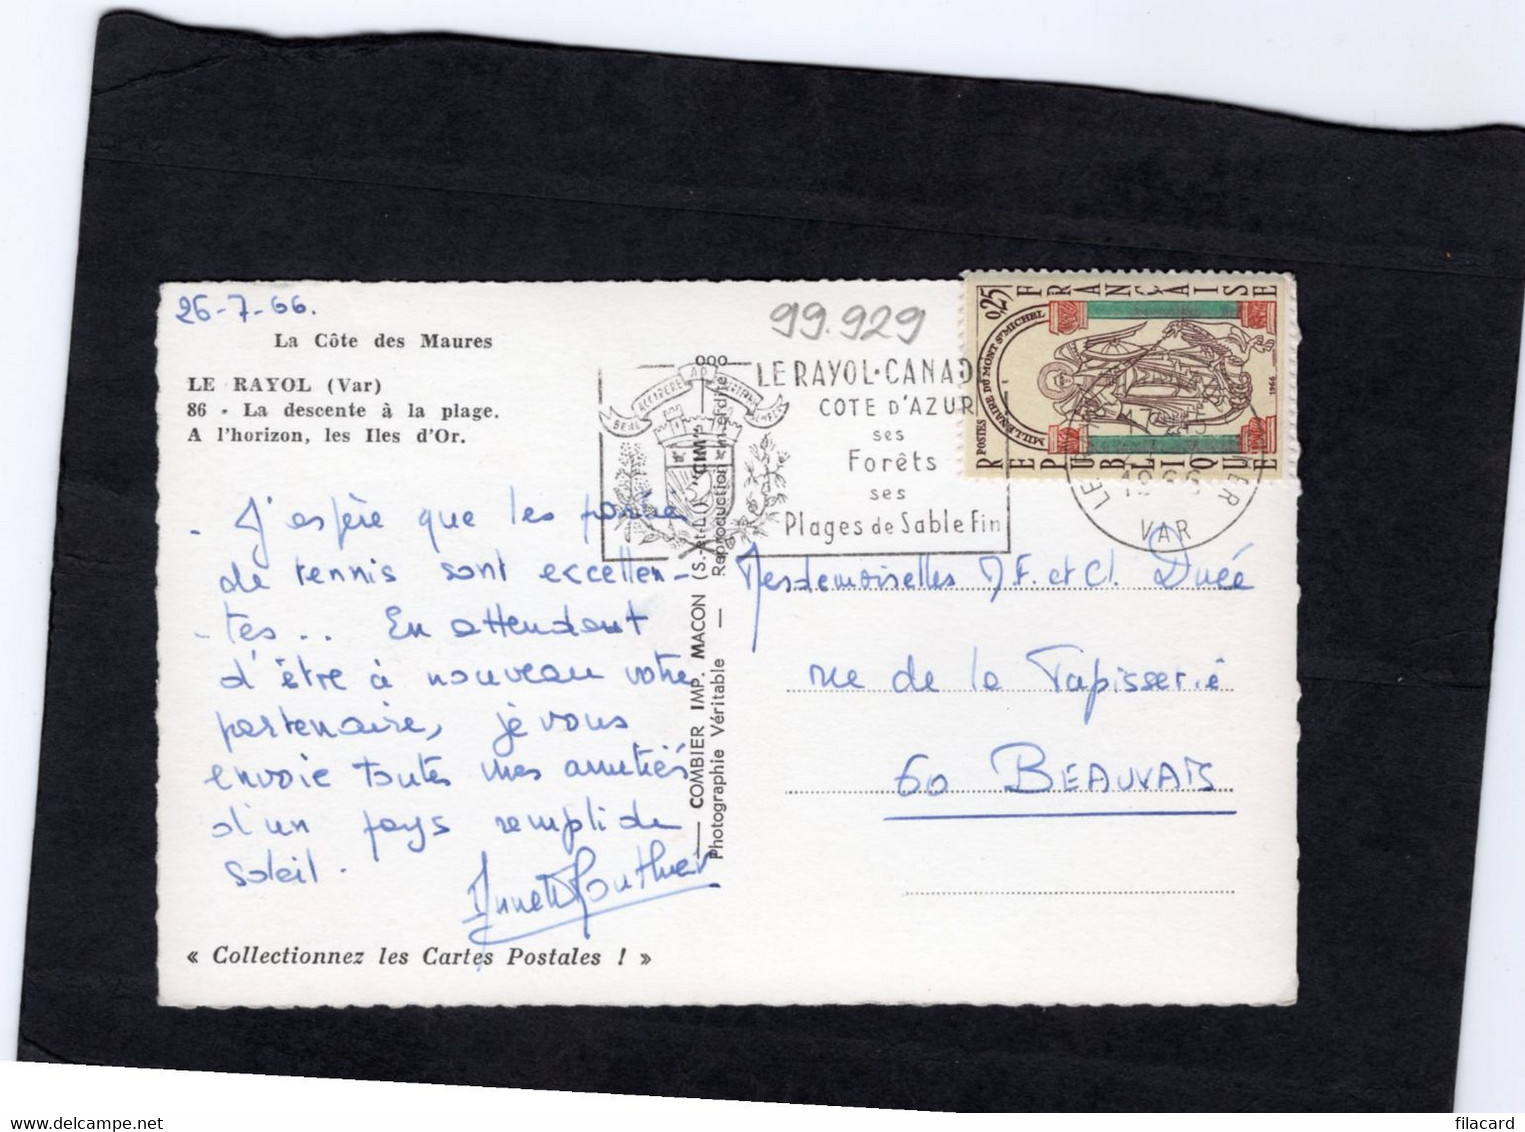 26-7-66.
La Côte des Maures
LE RAYOL (Var)
86 - La descente à la plage.
A l'horizon, les Iles d'Or.
- J'espère que les
de tennis sont excellen-
-tes... En attendant
d'être à nouveau votre
partenaire, je vous
envoie toutes mes amitiés
d'un pays rempli de
soleil.
« Collectionnez les Cartes Postales ! »
COMBIER IMP. MACON (S.-et-L.) "CIM"
Photographie Véritable — Reproduction interdite
99.929
ACCIPERE AD
LE RAYOL·CANAD
COTE D'AZUR
ses
Forêts
ses
Plages de Sable Fin
REPUBLIQUE FRANÇAISE
POSTES 0,25
MILLENAIRE DU MONT ST MICHEL
1966
VAR
Mesdemoiselles J.F. et Cl. Duée
rue de la Tapisserie
60 BEAUVAIS
filacard
delcampe.net